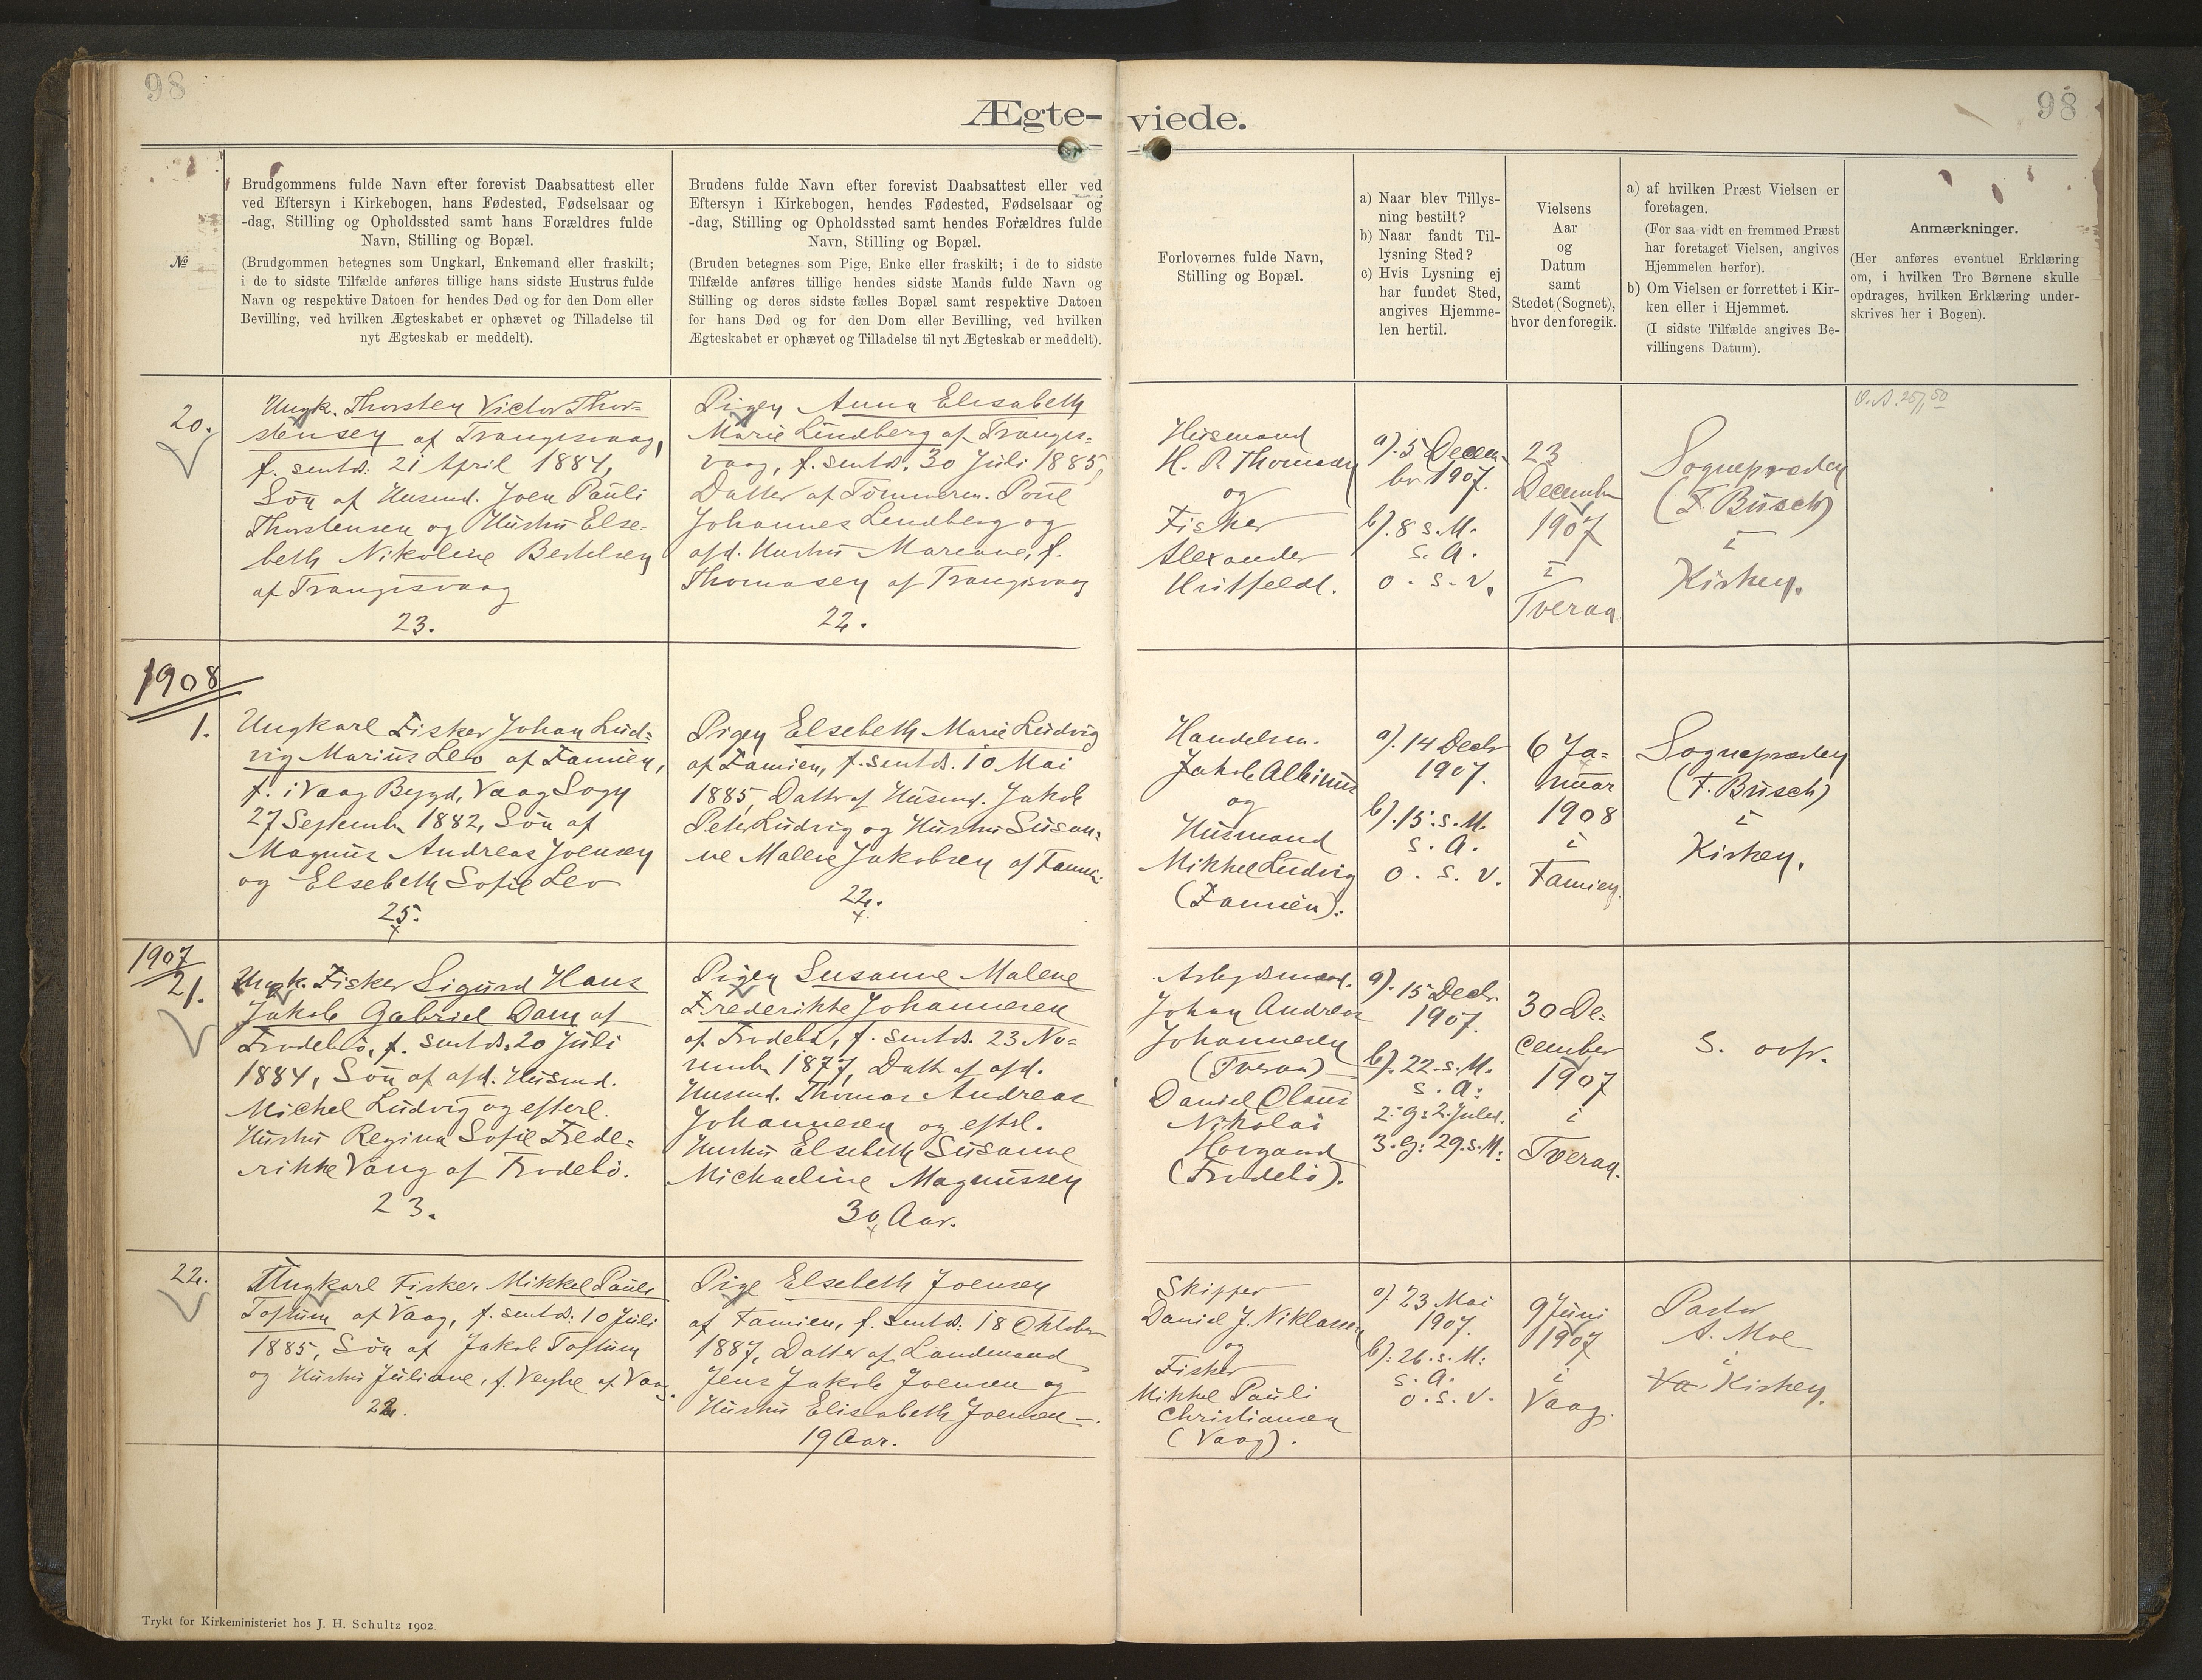 98
98
Ægte-
viede.
№
Brudgommens fulde Navn efter forevist Daabsattest eller
ved Eftersyn i Kirkebogen, hans Fødested, Fødselsaar og
-dag, Stilling og Opholdssted samt hans Forældres fulde
Navn, Stilling og Bopæl.
(Brudgommen betegnes som Ungkarl, Enkemand eller fraskilt;
i de to sidste Tilfælde anføres tillige hans sidste Hustrus fulde
Navn og respektive Datoen for hendes Død og for den Dom eller
Bevilling, ved hvilken Ægteskabet er ophævet og Tilladelse til
nyt Ægteskab er meddelt).
Brudens fulde Navn efter forevist Daabsattest eller ved
Eftersyn i Kirkebogen, hendes Fødested, Fødselsaar og
-dag, Stilling og Opholdssted samt hendes Forældres fulde
Navn, Stilling og Bopæl.
(Bruden betegnes som Pige, Enke eller fraskilt; i de to sidste
Tilfælde anføres tillige hendes sidste Mands fulde Navn og
Stilling og deres sidste fælles Bopæl samt respektive Datoen
for hans Død og for den Dom eller Bevilling, ved hvilken
Ægteskabet er ophævet og Tilladelse til nyt Ægteskab er meddelt).
Forlovernes fulde Navn,
Stilling og Bopæl.
a) Naar blev Tillys-
ning bestilt?
b) Naar fandt Til-
lysning Sted?
c) Hvis Lysning ej
har fundet Sted,
angives Hjemme-
len hertil.
Vielsens
Aar
og
Datum
samt
Stedet (Sognet),
hvor den foregik.
a) af hvilken Præst Vielsen er
foretagen.
(For saa vidt en fremmed Præst
har foretaget Vielsen, angives
Hjemmelen herfor).
b) Om Vielsen er forrettet i Kir-
ken eller i Hjemmet.
(I sidste Tilfælde angives Be-
villingens Datum).
Anmærkninger.
(Her anføres eventuel Erklæring
om, i hvilken Tro Børnene skulle
opdrages, hvilken Erklæring under-
skrives her i Bogen).
20.
Ungk. Thorsten Victor Thor-
stensen af Trangisvaag,
f. sentds. 21 April 1884,
Søn af Husmd. Joen Pauli
Thorstensen og Hustru Else-
beth Nikoline Bertelsen
af Trangisvaag
23.
Pigen Anna Elisabeth
Marie Lindberg af Trangis-
vaag, f. sentds. 30 Juli 1885,
Datter af Tømmerm. Poul
Johannes Lindberg og
afd. Hustru Mariane, f.
Thomasen af Trangisvaag
22.
Husmand
H. P. Thomasen
og
Fisker
Alexander
Hvitfeldt.
a). 5 Decem-
br 1907.
b). 8 s. M.
s. A.
o. s. v.
23
December
1907
i
Tveraa.
Sognepræsten
(F. Busch)
i
Kirken.
1908
1.
Ungkarl Fisker Johan Lud-
vig Marius Lev af Famien,
f. i Vaag Bygd, Vaag Sogn
27 September 1882, Søn af
Magnus Andreas Joensen
og Elsebeth Sofie Lev
25.
Pigen Elsebeth Marie Ludvig
af Famien, f. sentds. 10 Mai
1885, Dattr af Husmd. Jakob
Peter Ludvig og Hustru Susan-
ne Malene Jakobsen af Famien.
22.
Handelsm.
Jakob Albinus
og
Husmand
Mikkel Ludvig
(Famien).
a). 14 Decbr
1907.
b). 15. s. M.
s. A.
o. s. v.
6 Ja-
nuar
1908
i
Famien.
Sognepræsten
(F. Busch)
i
Kirken.
1907
21.
Ungk. Fisker Sigurd Hans
Jakob Gabriel Dam af
Frodebø, f. sentds. 20 Juli
1884, Søn af afd. Husmd.
Michel Ludvig og efterl.
Hustru Regina Sofie Frede-
rikke Vang af Frodebø.
23.
Pigen Susanne Malene
Frederikke Johannesen
af Frodebø, f. sentds. 23 No-
vember 1877, Datt. af afd.
Husmd. Thomas Andreas
Johannesen og efterl.
Hustru Elsebeth Susanne
Michaeline Magnussen
30 Aar.
Arbejdsmand.
Johan Andreas
Johannesen
(Tveraa)
Daniel Claus
Nikolai
Horgand
(Frodebø).
a). 15 Decbr.
1907.
b). 22. s. M.
s. A:
2. G: 2. Juled.
3. G: 29. s. M:
30 De-
cember
1907
i
Tveraa.
s. ovfr.
22.
Ungkarl Fisker Mikkel Pauli
Toftum af Vaag, f. sentds: 10 Juli
1885, Søn af Jakob Toftum
og Hustru Juliane, f. Veyhe af Vaag.
22.
Pige Elsebeth Joensen
af Famien, f. sentds: 18 Oktober
1887, Datter af Landmand
Jens Jakob Joensen og
Hustru Elisabeth Joensen –.
19 Aar.
Skipper
Daniel J. Niklasen
og
Fisker
Mikkel Pauli
Christiansen
(Vaag).
a). 23 Mai
1907.
b): 26. s. M:
s. A.
o. s. v.
9 Juni
1907
i
Vaag.
Pastor
A. Moe
i
Va Kirken.
Trykt for Kirkeministeriet hos J. H. Schultz 1902